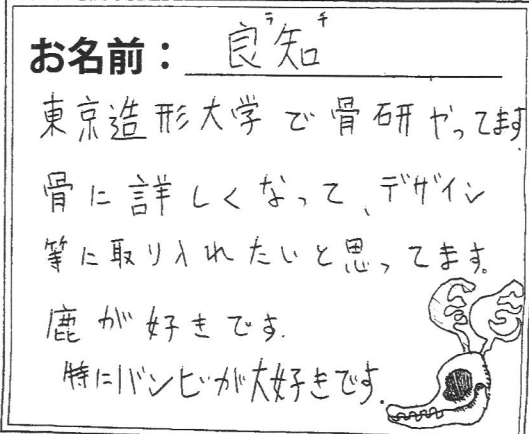 お名前：良知
ラチ
東京造形大学で骨研やってます
骨に詳しくなって、デザイン
等に取り入れたいと思ってます。
鹿が好きです.
特にバンビが大好きです.